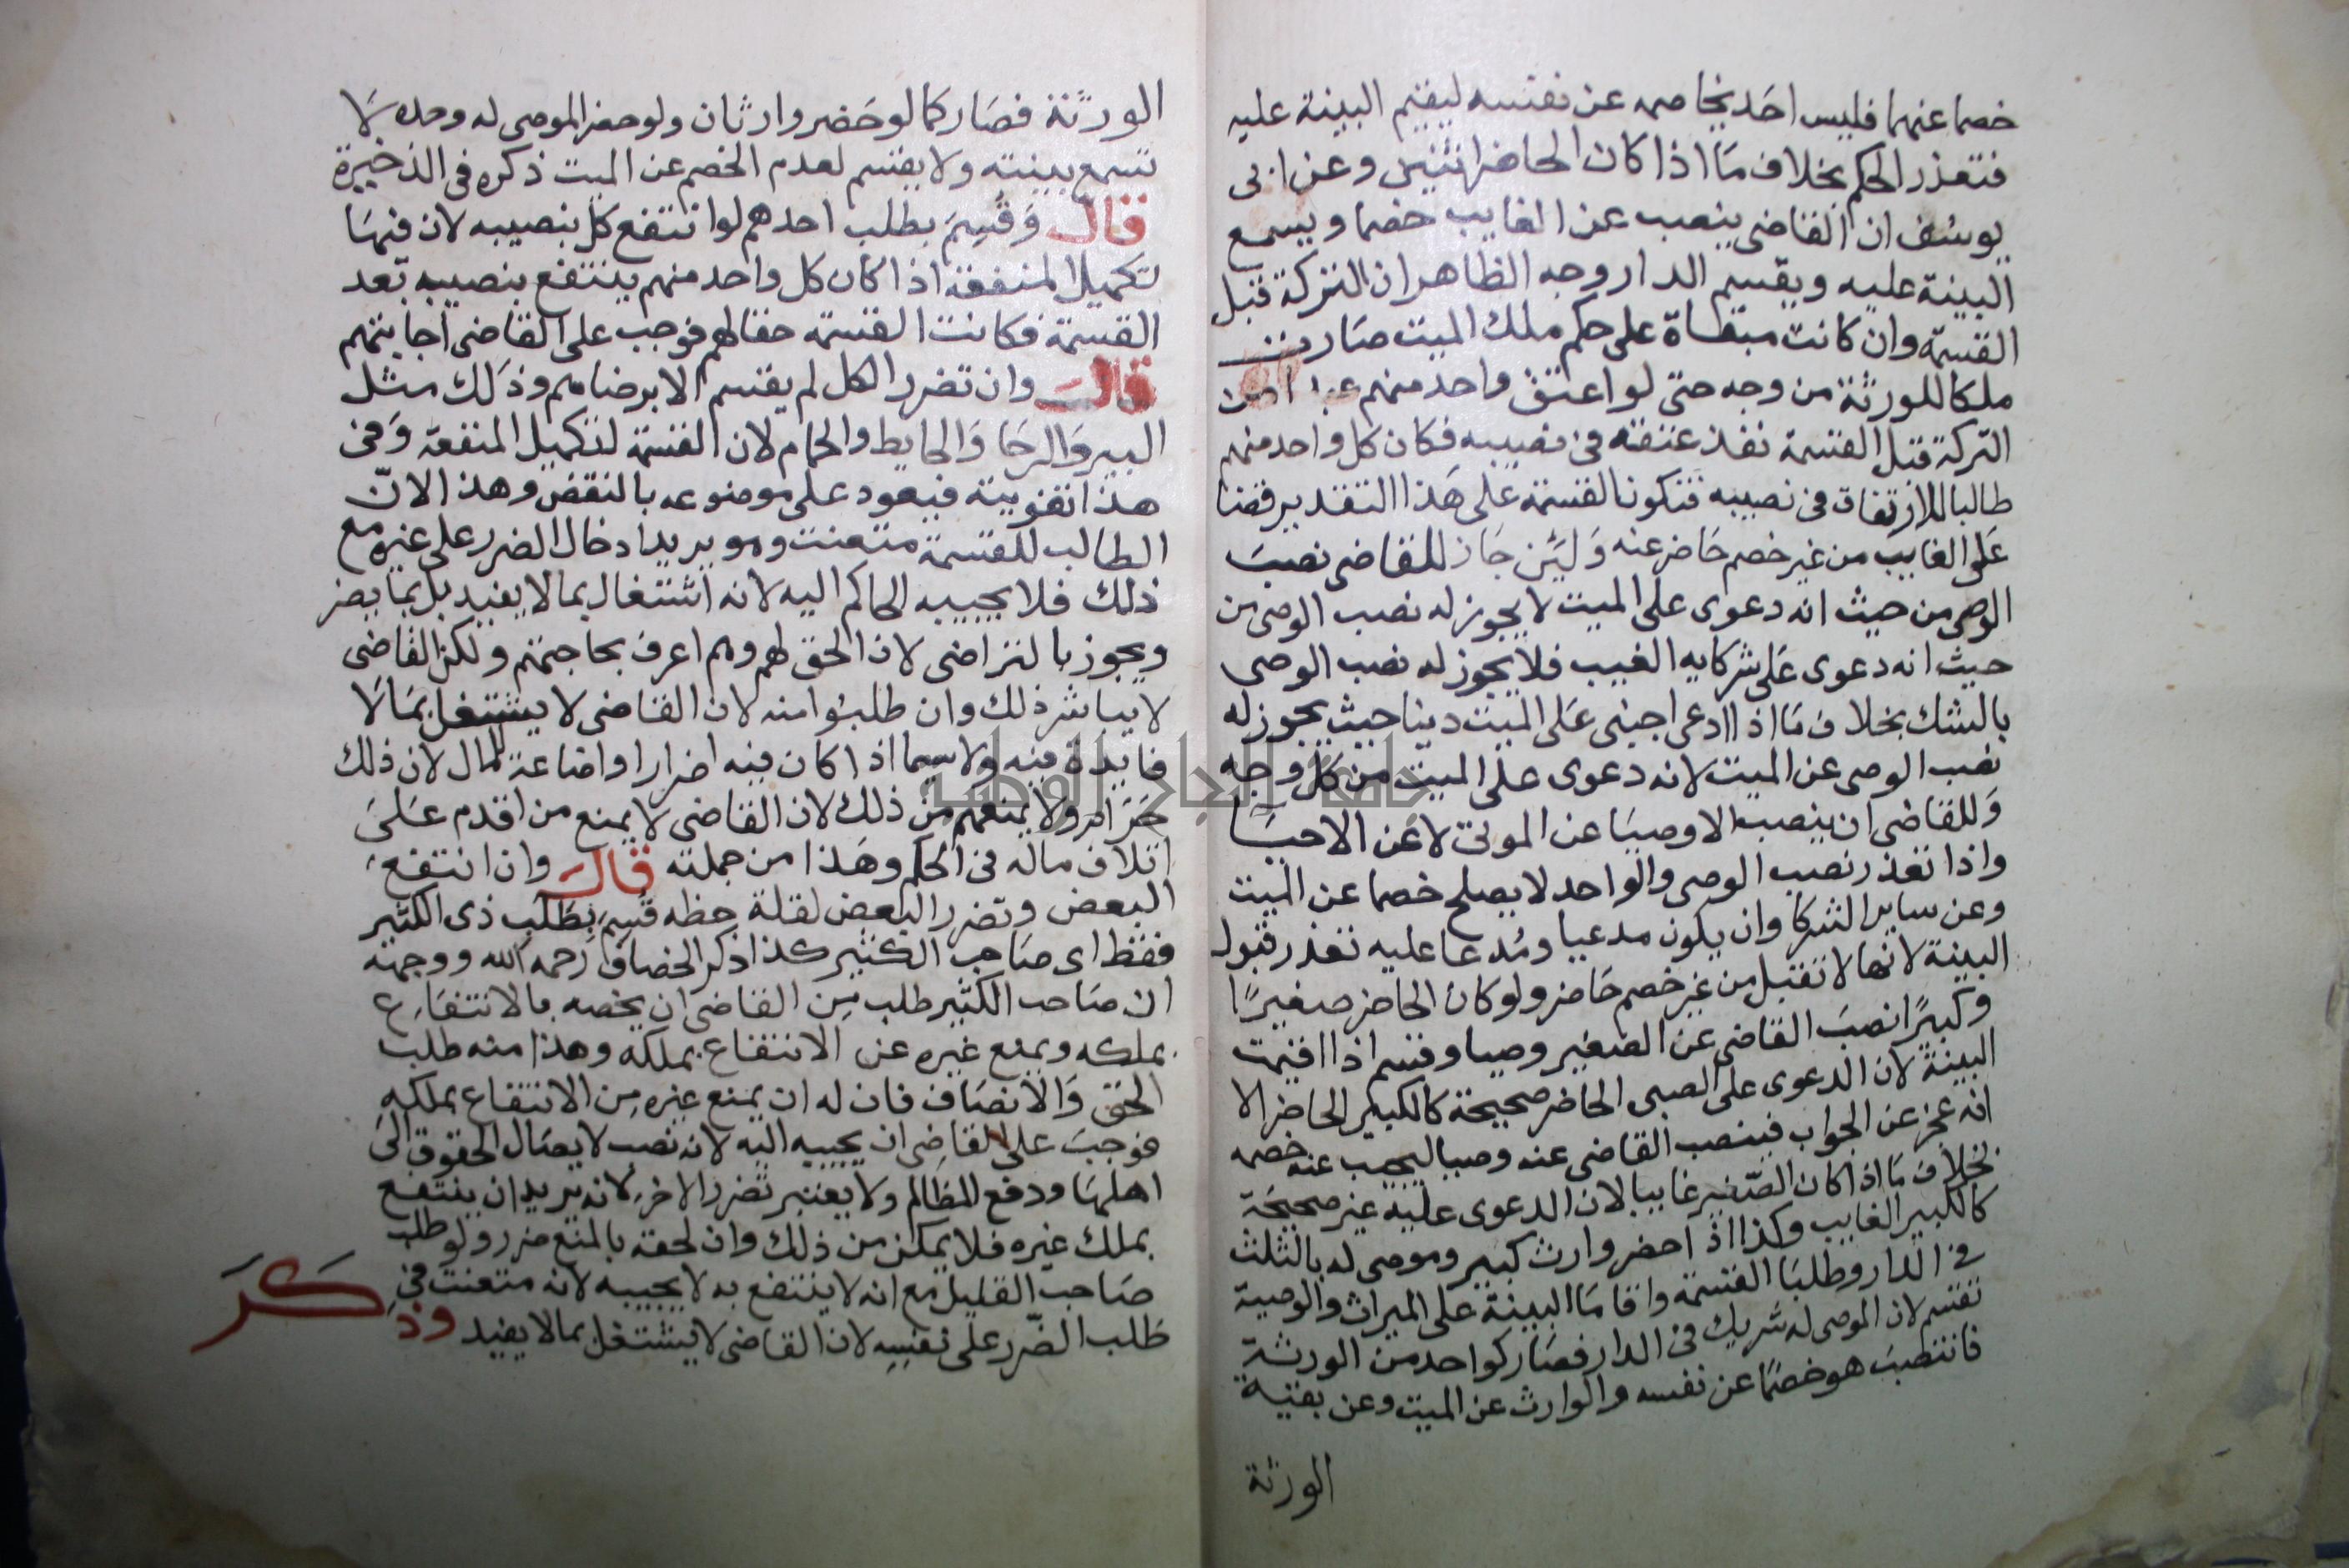 خصما عنهما فليس احد يخاصمه عن نفسه ليقيم البينة عليه
فتعذر الحكم بخلاف ما اذا كان الحاضر اثنين وعن ابى
يوسف ان القاضى ينصب عن الغايب خصما ويسمع
البينة عليه ويقسم الدار وجه الظاهر ان التركة قبل
القسمة وان كانت مبقاة على حكم ملك الميت صارت
ملكا للورثة من وجه حتى لو اعتق واحد منهم عبدا من
التركة قبل القسمة نفذ عتقه فى نصيبه فكان كل واحد منهم
طالبا للارتفاق فى نصيبه فتكون القسمة على هذا التقدير قضا
على الغايب من غير خصم حاضر عنه ولئن جاز للقاضى نصب
الوصى من حيث انه دعوى على الميت لا يجوز له نصب الوصى من
حيث انه دعوى على شركايه الغيب فلا يجوز له نصب الوصى
بالشك بخلاف ما اذا ادعى اجنبى على الميت دينا حيث يجوز له
نصب الوصى عن الميت لانه دعوى على الميت من كل وجه
وللقاضى ان ينصب الاوصيا عن الموتى لا عن الاحيا
واذا تعذر نصب الوصى والواحد لا يصلح خصما عن الميت
وعن ساير الشركا وان يكون مدعيا ومدعا عليه تعذر قبول
البينة لانها لا تقبل من غير خصم حاضر ولو كان الحاضر صغيرًا
وكبيرًا نصب القاضى عن الصغير وصيا وقسم اذا اقيمت
البينة لان الدعوى على الصبى الحاضر صحيحة كالكبير الحاضر الا
انه عجز عن الجواب فينصب القاضى عنه وصيا ليجيب عنه خصمه
بخلاف ما اذا كان الصغير غايبا لان الدعوى عليه غير صحيحة
كالكبير الغايب وكذا اذا حضر وارث كبير وموصى له بالثلث
فى الدار وطلبا القسمة واقاما البينة على الميراث والوصية
تقسم لان الموصى له شريك فى الدار فصار كواحد من الورثة
فانتصب هو خصمًا عن نفسه والوارث عن الميت وعن بقية
الورثة
الورثة فصار كما لو حضر وارثان ولو حضر الموصى له وحده لا
تسمع بينته ولا يقسم لعدم الخصم عن الميت ذكره فى الذخيرة
قال وقسم بطلب احدهم لو انتفع كل بنصيبه لان فيها
تكميل المنفعة اذا كان كل واحد منهم ينتفع بنصيبه بعد
القسمة فكانت القسمة حقا لهم فوجب على القاضى اجابتهم
قال وان تضرر الكل لم يقسم الا برضاهم وذلك مثل
البير والرحا والحايط والحمام لان القسمة لتكميل المنفعة وفى
هذا تفويتة فيعود على موضوعه بالنقض وهذا لان
الطالب للقسمة متعنت وهو يريد ادخال الضرر على غيره مع
ذلك فلا يجيبه الحاكم اليه لانه اشتغال بما لا يفيد بل بما يضر
ويجوز بالتراضى لان الحق لهم وهم اعرف بحاجتهم ولكن القاضى
لا يباشر ذلك وان طلبوا منه لان القاضى لا يشتغل بما لا
فايدة فيه ولا سيما اذا كان فيه اضرارا واضاعة المال لان ذلك
حرام ولا يمنعهم من ذلك لان القاضى لا يمنع من اقدم على
اتلاف ماله فى الحكم وهذا من جملته قال وان انتفع
البعض وتضرر البعض لقلة حظه قسم بطلب ذى الكثير
فقط اى صاحب الكثير كذا ذكر الخصاف رحمه الله ووجهه
ان صاحب الكثير طلب من القاضى ان يخصه بالانتفاع
بملكه ويمنع غيره عن الانتفاع بملكه وهذا منه طلب
الحق والانصاف فان له ان يمنع غيره من الانتفاع بملكه
فوجب على القاضى ان يجيبه اليه لانه نصب لايصال الحقوق الى
اهلها ودفع المظالم ولا يعتبر تضرر الاخر لانه يريد ان ينتفع
بملك غيره فلا يمكن من ذلك وان لحقه بالمنع ضرر ولو طلب
صاحب القليل مع انه لا ينتفع به لا يجيبه لانه متعنت فى
طلب الضرر على نفسه لان القاضى لا يشتغل بما لا يفيد وذكر
جامعة النجاح الوطنية